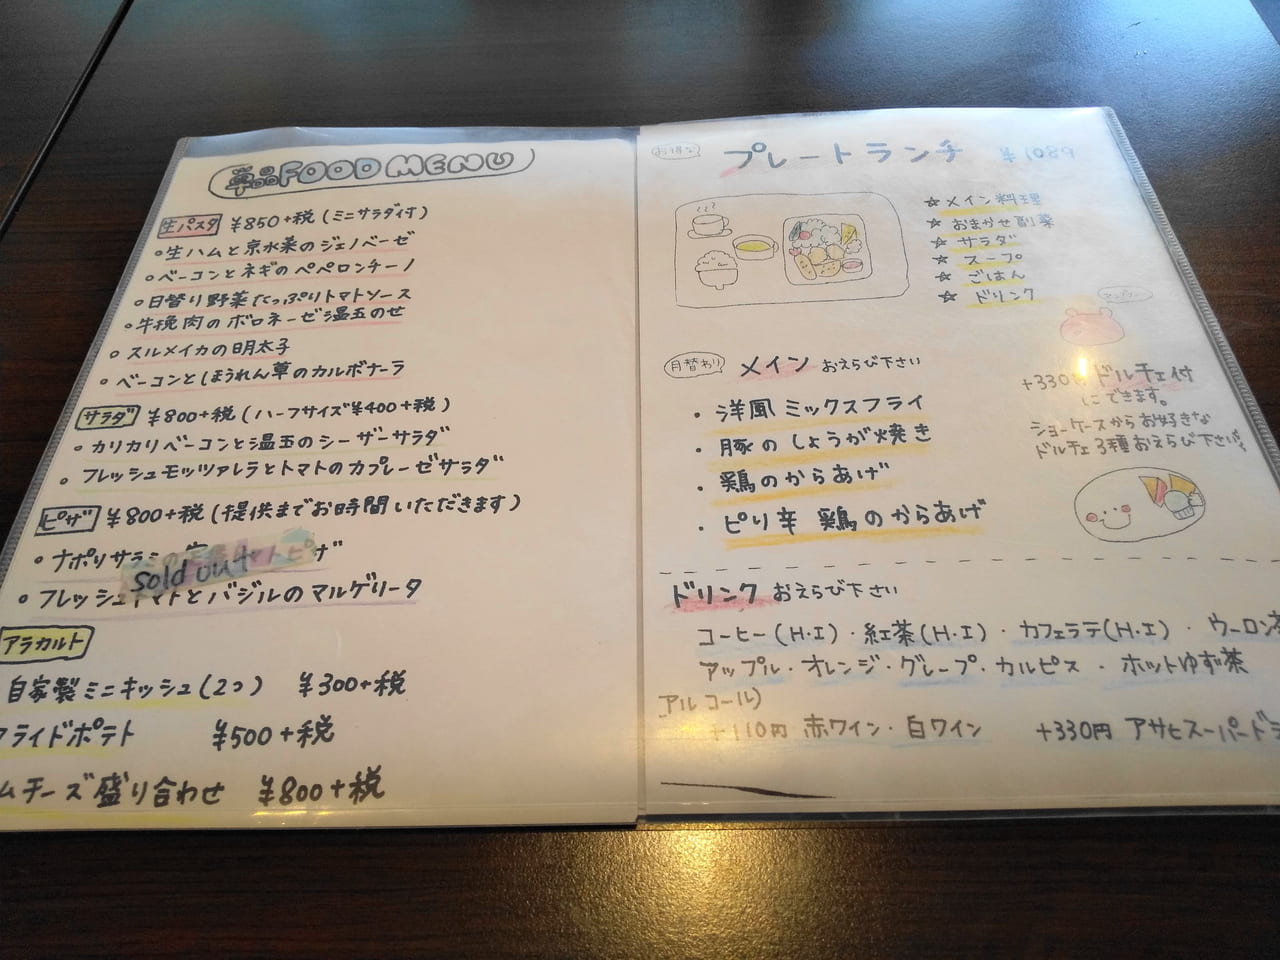 単品FOOD MENU
生パスタ ¥850+税 (ミニサラダ付)
・生ハムと京水菜のジェノベーゼ
・ベーコンとネギのペペロンチーノ
・日替り野菜たっぷりトマトソース
・牛挽肉のボロネーゼ温玉のせ
・スルメイカの明太子
・ベーコンとほうれん草のカルボナーラ
サラダ ¥800+税 (ハーフサイズ¥400+税)
・カリカリベーコンと温玉のシーザーサラダ
・フレッシュモッツァレラとトマトのカプレーゼサラダ
ピザ ¥800+税(提供までお時間いただきます)
・ナポリサラミの
sold out
・フレッシュトマトとバジルのマルゲリータ
アラカルト
自家製ミニキッシュ(2つ) ¥300+税
フライドポテト ¥500+税
ムチーズ盛り合わせ ¥800+税
お得な プレートランチ ¥1089
☆メイン料理
☆おまかせ副菜
☆サラダ
☆スープ
☆ごはん
☆ドリンク
月替わり メイン おえらび下さい
・洋風ミックスフライ
・豚のしょうが焼き
・鶏のからあげ
・ピリ辛 鶏のからあげ
+330円ドルチェ付
にできます。
ショーケースからお好きな
ドルチェ3種おえらび下さい。
ドリンク おえらび下さい
コーヒー(H・I)・紅茶(H・I)・カフェラテ(H・I)・ウーロン茶
アップル・オレンジ・グレープ・カルピス・ホットゆず茶
アルコール)
+110円 赤ワイン・白ワイン +330円 アサヒスーパードラ